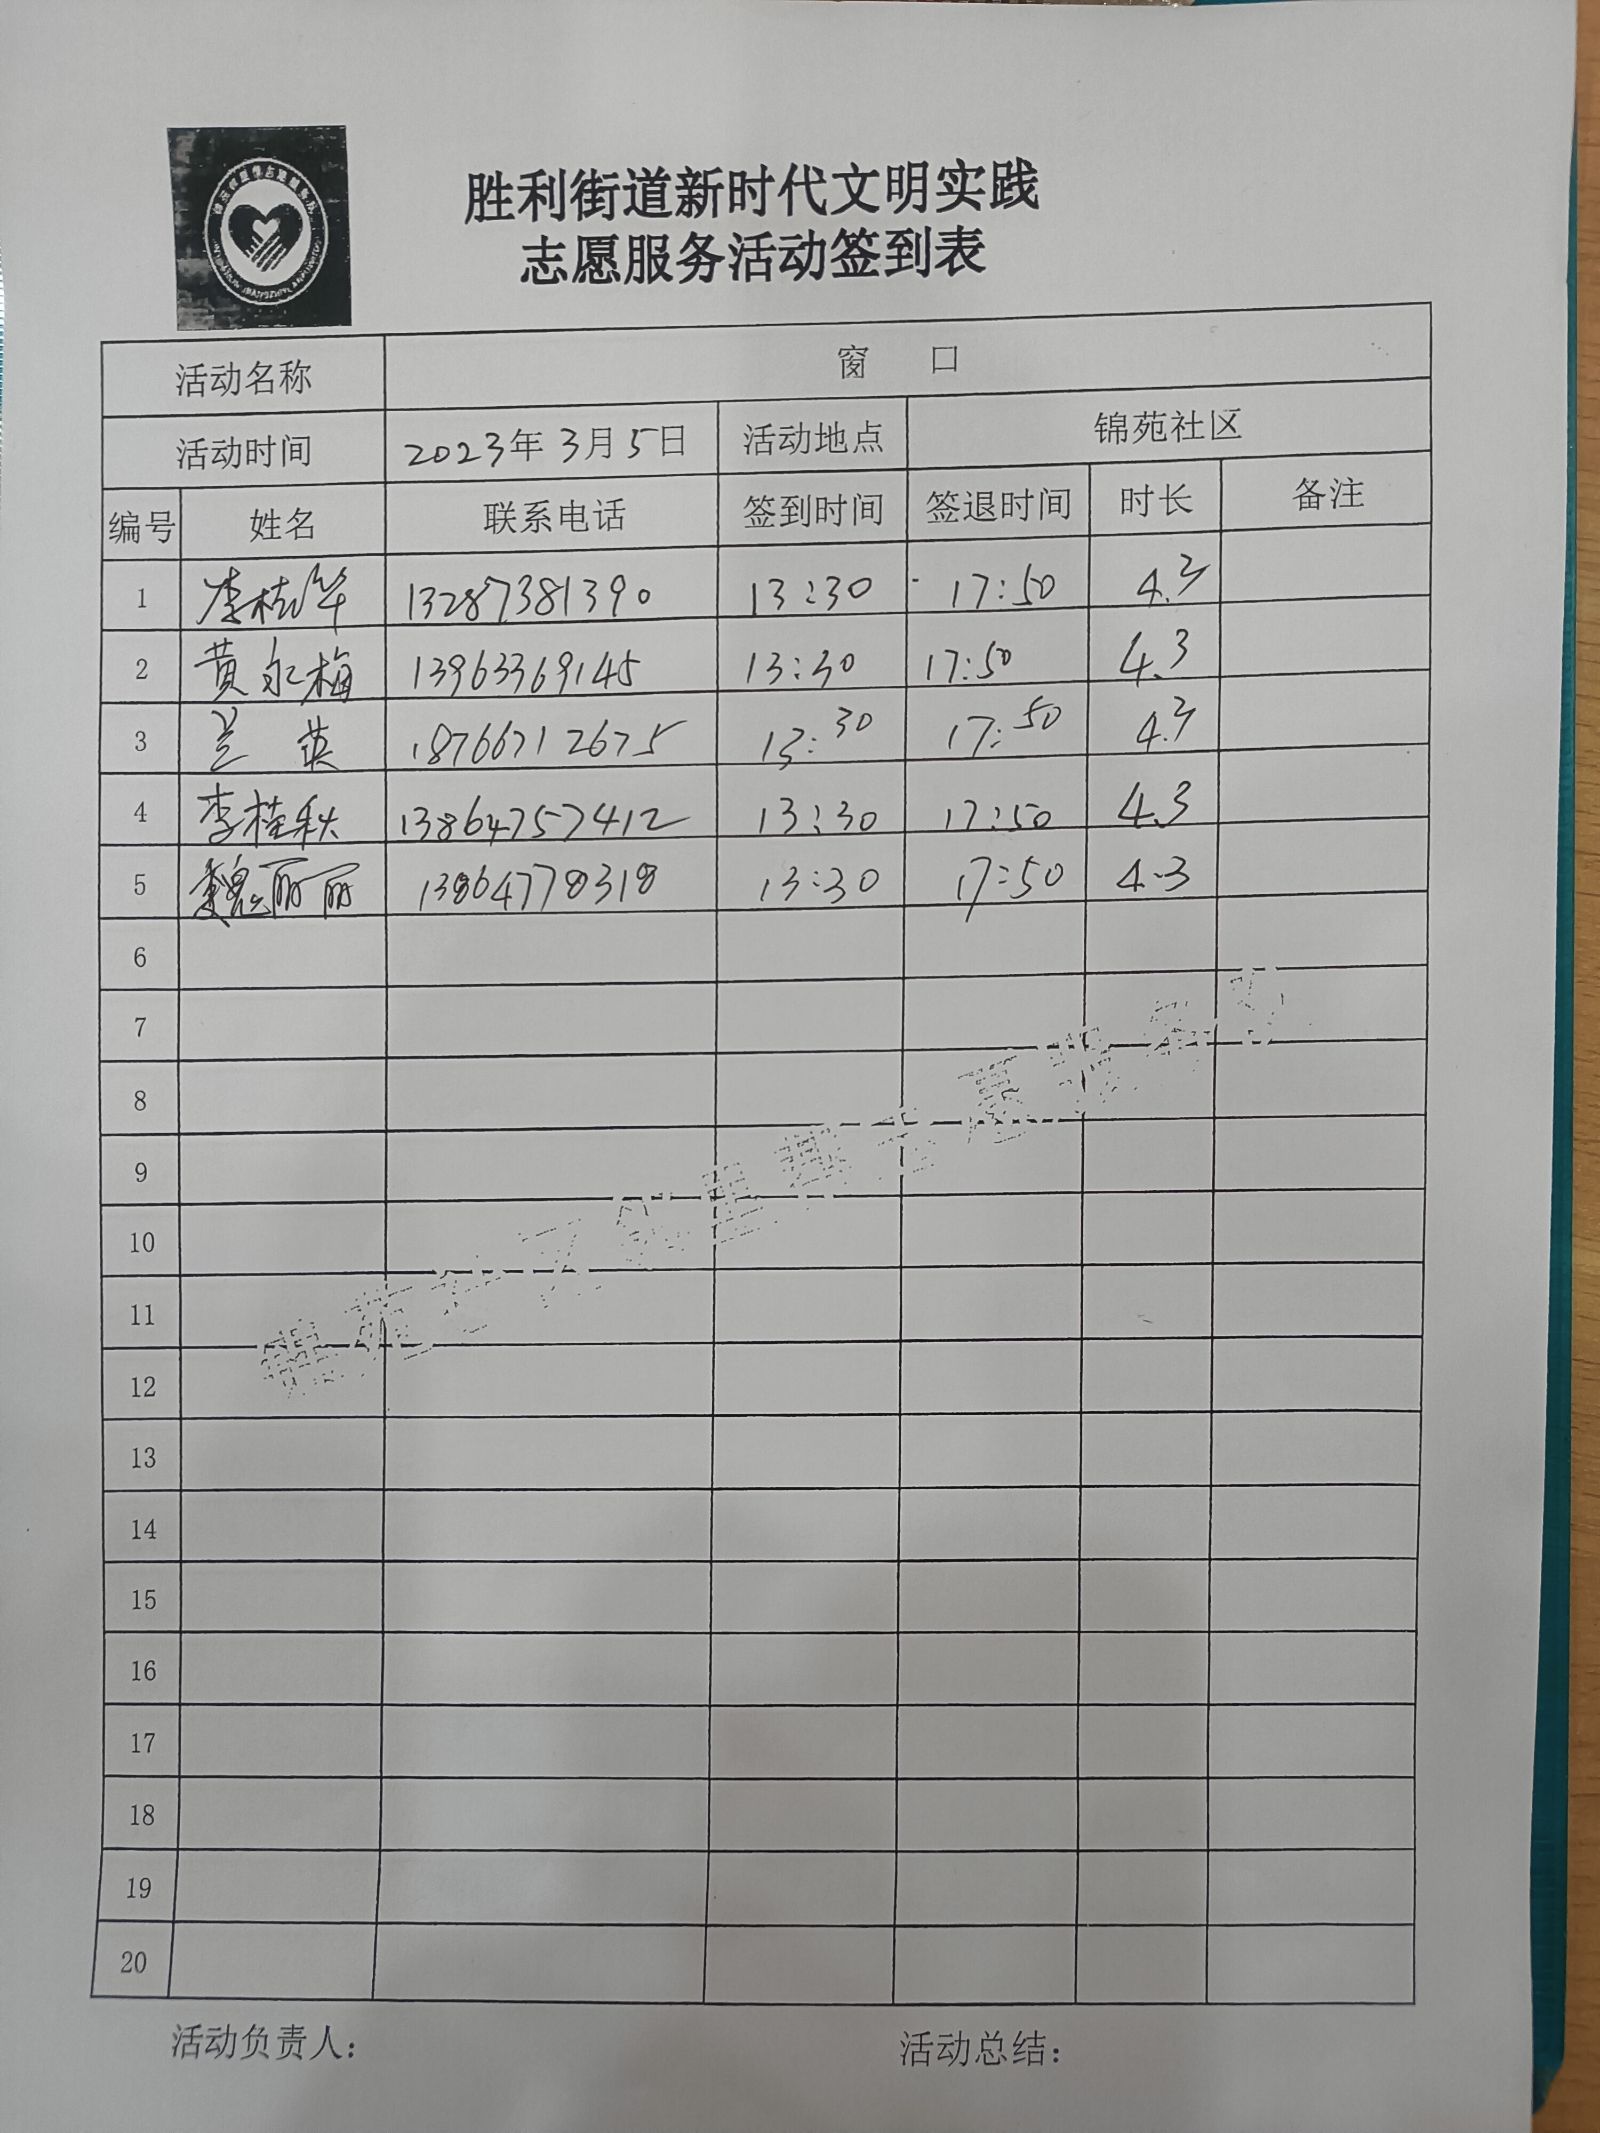 胜利街道新时代文明实践
志愿服务活动签到表
活动名称 窗 口
活动时间 2023年3月5日 活动地点 锦苑社区
编号 姓名 联系电话 签到时间 签退时间 时长 备注
1 李桂华 13287381390 13:30 17:50 4.3
2 黄永梅 13963369145 13:30 17:50 4.3
3 兰英 18766712675 13:30 17:50 4.3
4 李桂秋 13864757412 13:30 17:50 4.3
5 魏丽丽 13864778318 13:30 17:50 4.3
6
7
8
9
10
11
12
13
14
15
16
17
18
19
20
活动负责人: 活动总结: